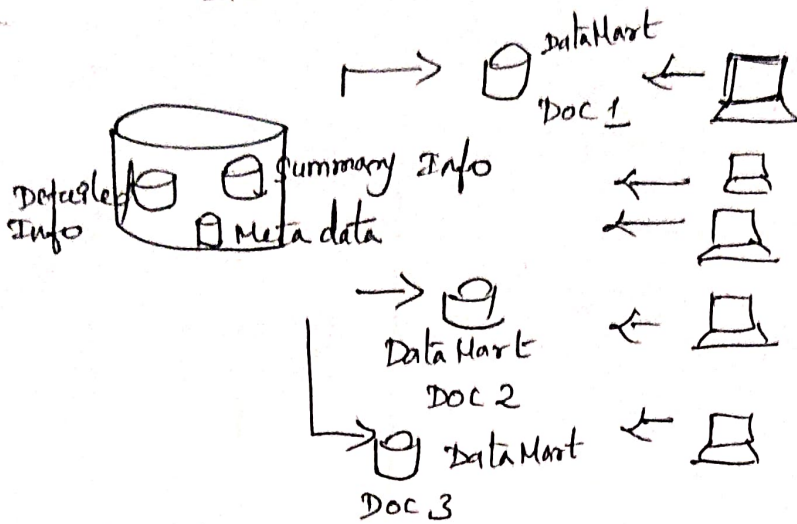 DataMart
DOC 1
Detailed
Info
Summary Info
Meta data
Data Mart
DOC 2
Data Mart
DOC 3